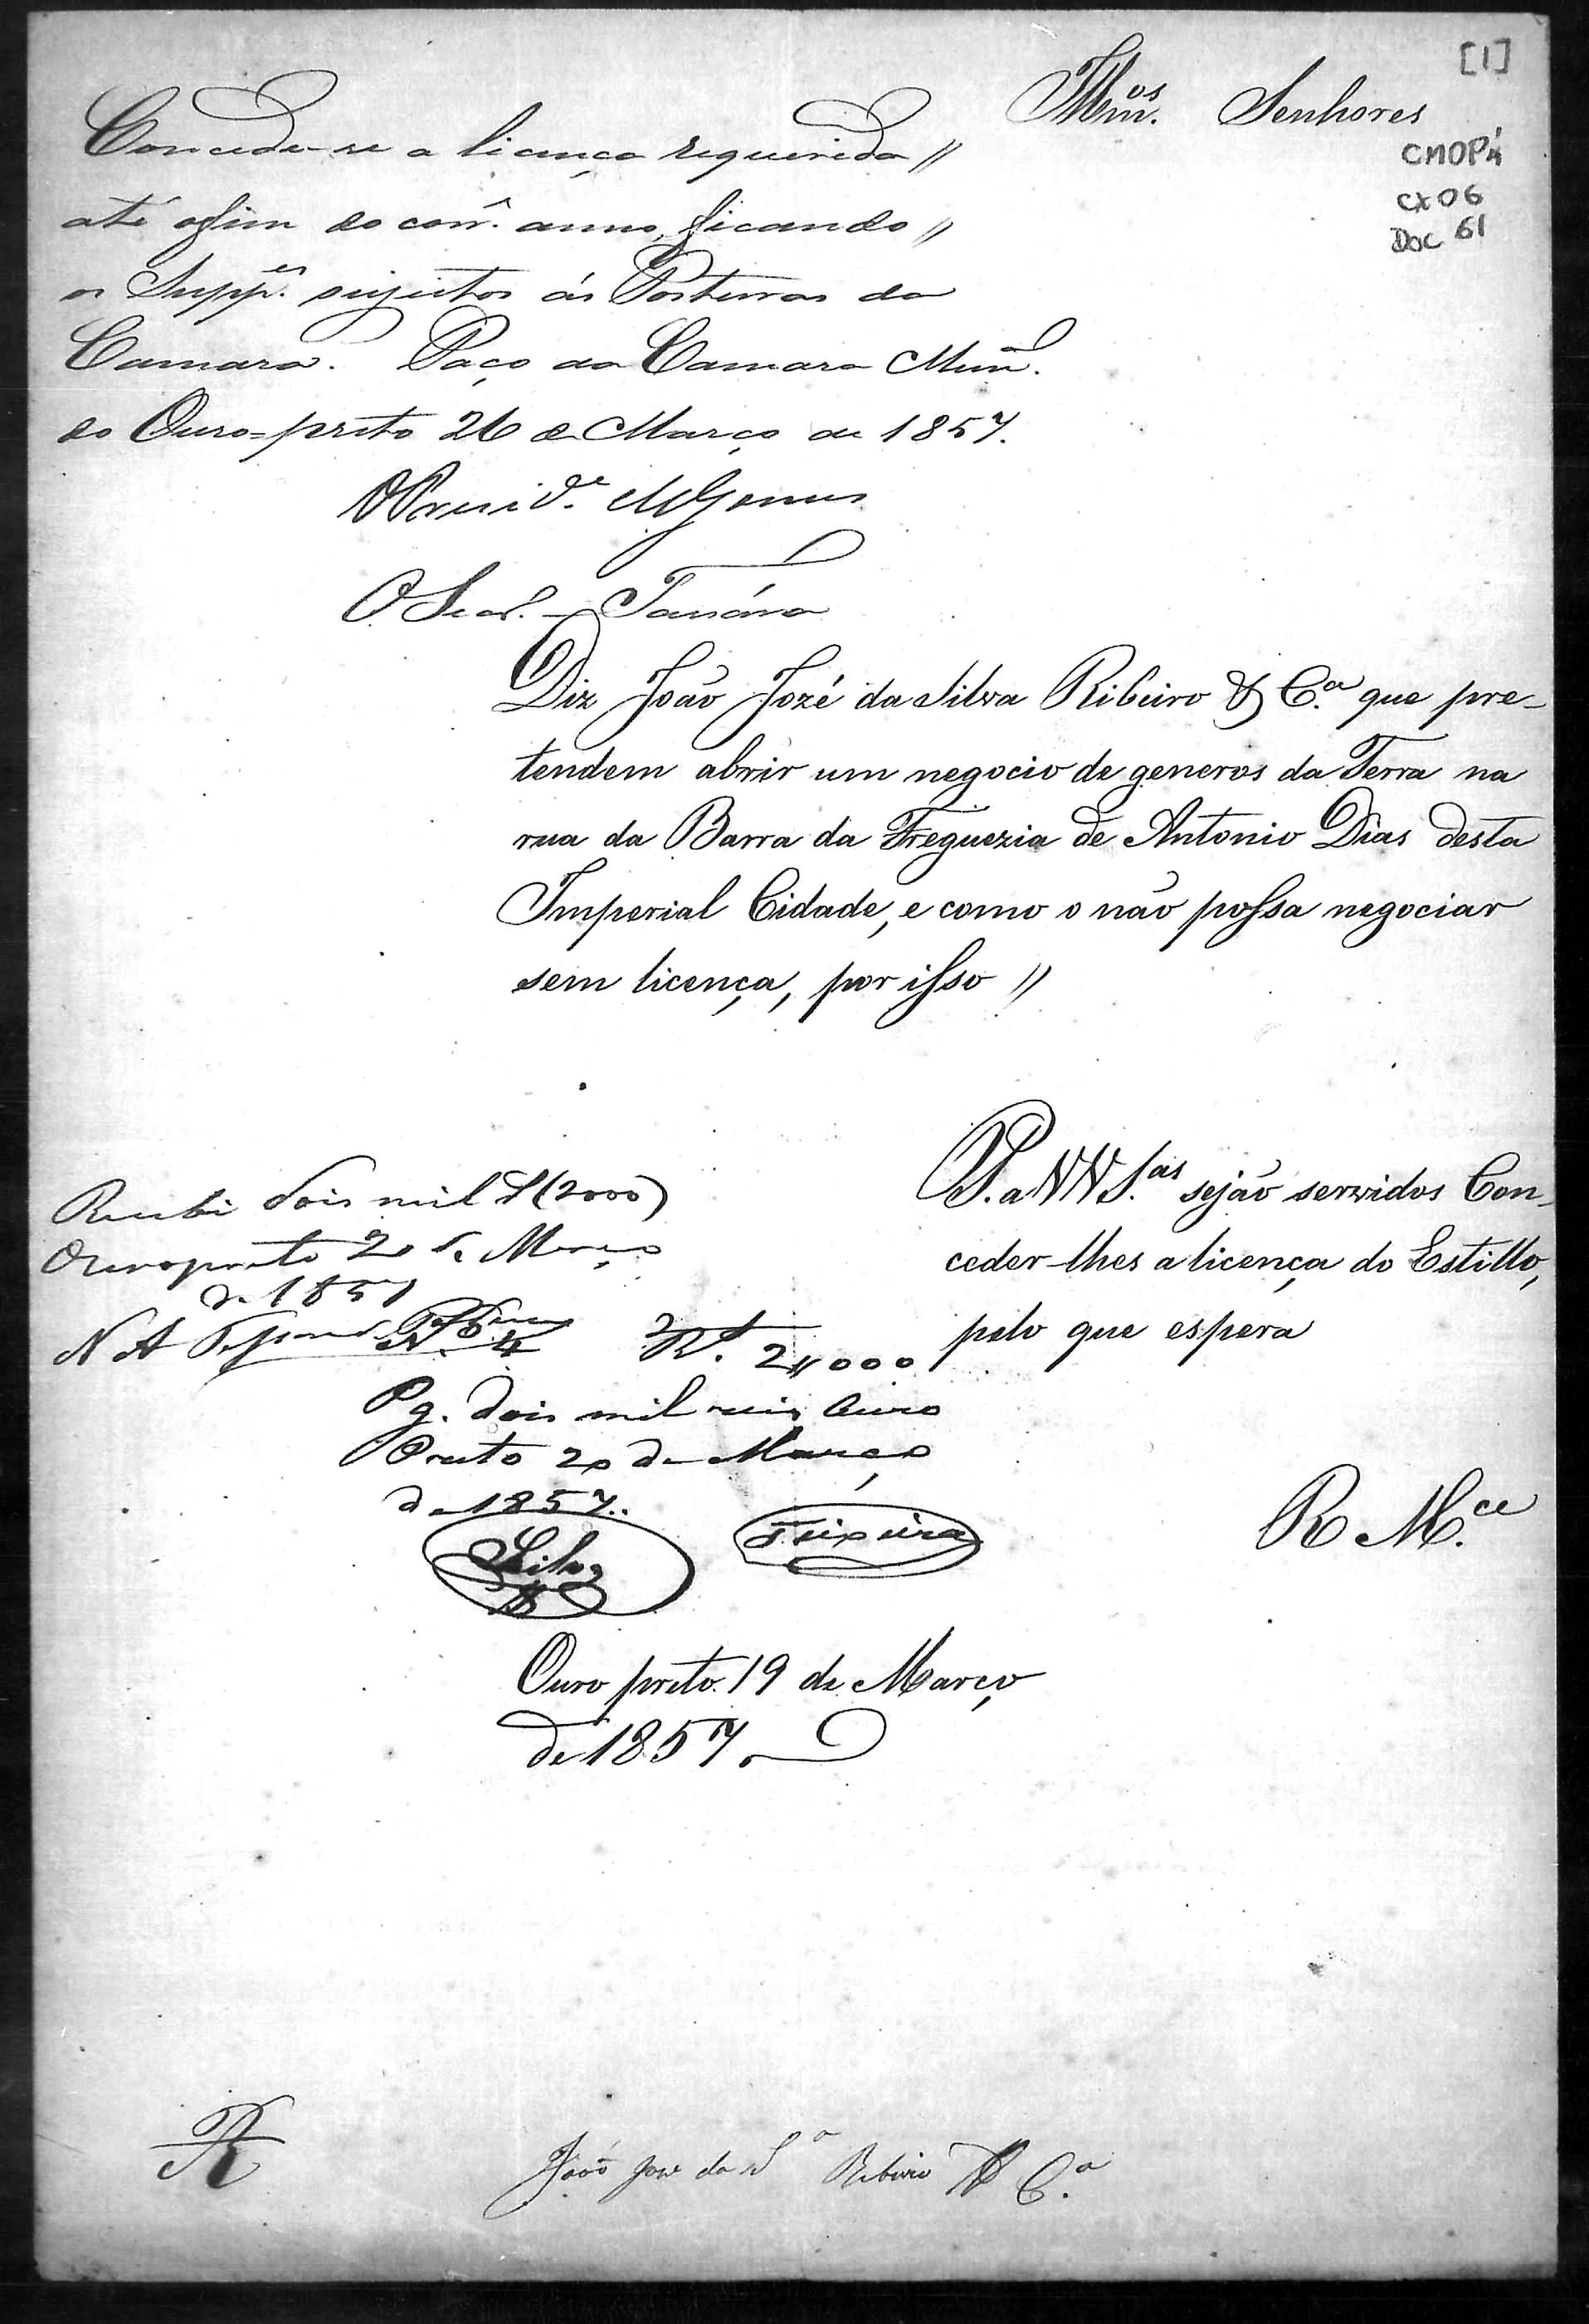 [1]
Illm.os Senhores
CMOP4
CX 06
Doc 61
Concede-se a licença requerida //
até o fim do corr.e anno, ficando //
os Supp.es sujeitos ás Posturas da
Camara. Paço da Camara Mun.
do Ouro=preto 26 de Março de 1857.
O Presid.e MGomes
O Secr.
Diz João Jozé da Silva Ribeiro & C.a que pre-
tendem abrir um negocio de generos da Terra na
rua da Barra da Freguezia de Antonio Dias desta
Imperial Cidade, e como o não possa negociar
sem licença, por isso //
P. a VV S.as sejão servidos Con-
ceder-lhes a licença do Estillo,
pelo que espera
R M.ce
Recebi dois mil r(2000)
Ouropreto 20 de Março
de 1857
N.4 R.s 2//000
Pg. dois mil reis Ouro
Preto 20 de Março
de 1857.
Silva Teixeira
Ouro preto 19 de Março
de 1857.
R
João Joze da S.a Ribeiro & C.a